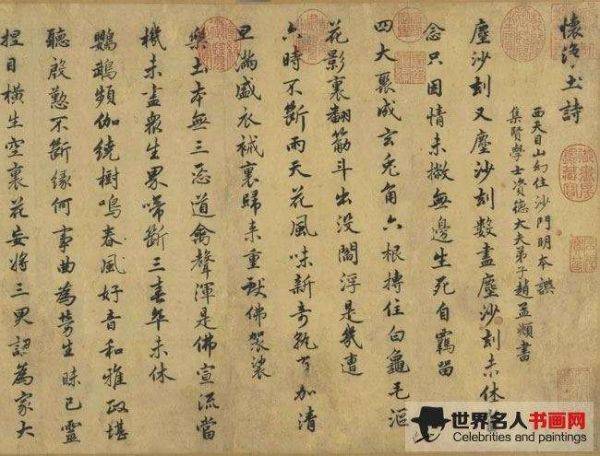 懷淨土詩
西天目山幻住沙門明本譔
集賢學士資德大夫弟子趙孟頫書
塵沙刼又塵沙刼數盡塵沙刼未休當
念只因情未撇無邊生死自羈留
四大聚成玄兔角六根摶住白龜毛漚
花影裏翻筋斗出沒閻浮是幾遭
六時不斷雨天花風味新奇孰有加清
旦滿盛衣祴裏歸來重獻佛袈裟
樂土本無三惡道禽聲渾是佛宣流當
機未盡衆生界啼斷三春卒未休
鸚鵡頻伽繞樹鳴春風好音和雅政堪
聽殷懃不斷緣何事曲為勞生昧已靈
捏目橫生空裏花妄將三界認為家大
世界名人书画网
Celebrities and paintings